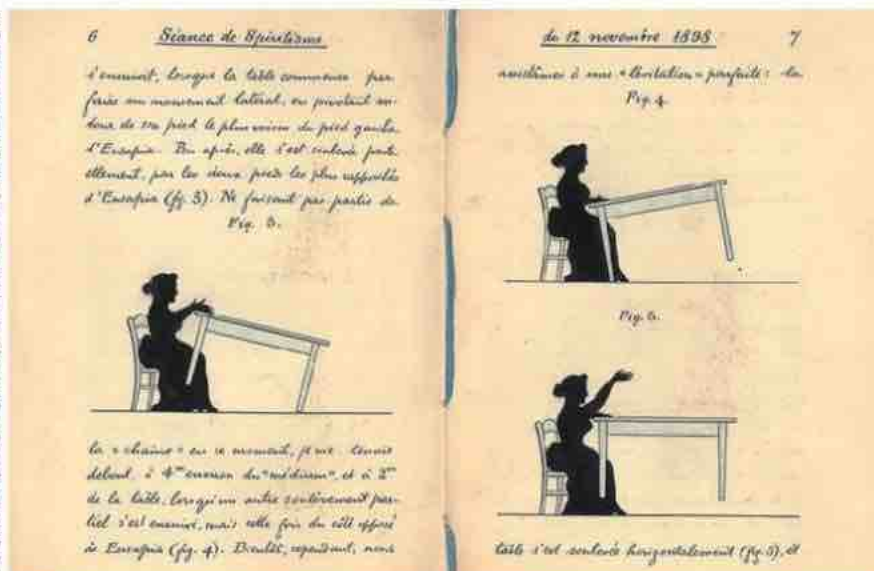 6 Séance de Spiritisme
s'ensuivit, lorsque la table commence par
faire un mouvement latéral, en pivotant au-
tour de son pied le plus voisin du pied gauche
d'Eusapia. Peu après, elle s'est soulevée parti-
ellement, par les deux pieds les plus rapprochés
d'Eusapia (fig. 3). Ne faisant pas partie de
Fig. 3.
la « chaîne » en ce moment, je me tenais
debout, à 4m environ du "médium", et à 2m
de la table, lorsqu'un autre soulèvement par-
tiel s'est ensuivi, mais cette fois du côté opposé
à Eusapia (fig. 4). Bientôt, cependant, nous
du 12 novembre 1898 7
assistâmes à une « lévitation » parfaite : la
Fig. 4
Fig. 5.
table s'est soulevée horizontalement (fig. 5), et